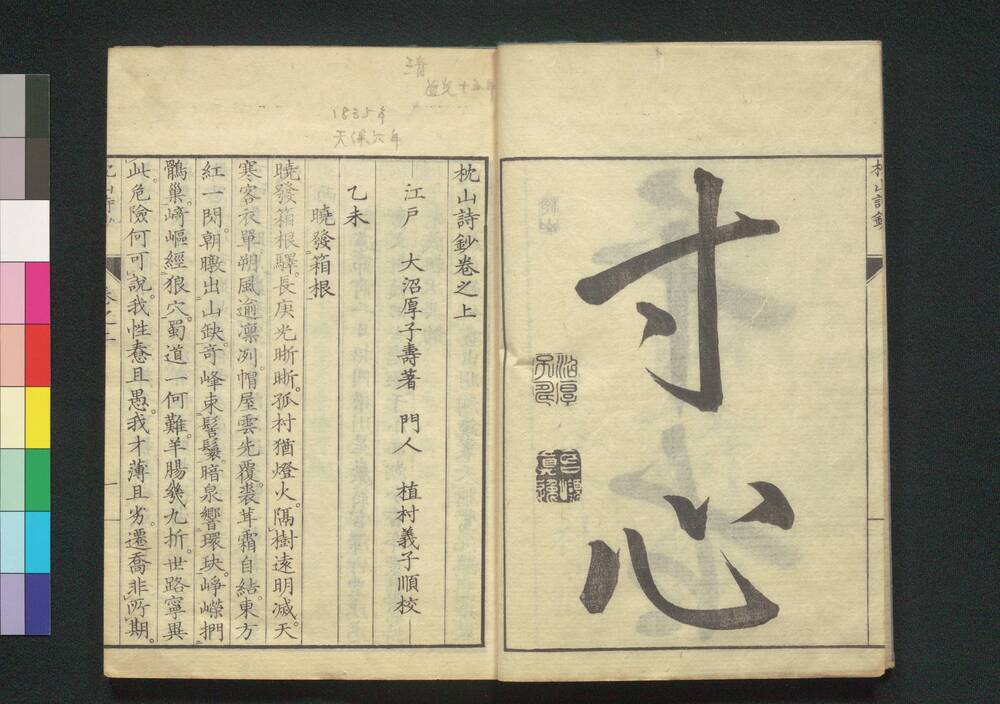 枕山詩鈔
寸心
枕山詩鈔卷之上
江戶　大沼厚子壽著　門人　植村義子順校
乙未
曉發箱根
曉發箱根驛。長庚光晣晣。孤村猶燈火。隔樹遠明滅。天
寒客衣單。朔風逾凛冽。帽屋雲先覆。裘茸霜自結。東方
紅一閃。朝暾出山缺。奇峰束髻鬟。暗泉響環玦。崢嶸捫
鶻巢。崎嶇經狼穴。蜀道一何難。羊腸幾九折。世路寧異
此。危險何可說。我性惷且愚。我才薄且劣。遷喬非所期。
一
1835年
天保六年
清
道光十五年